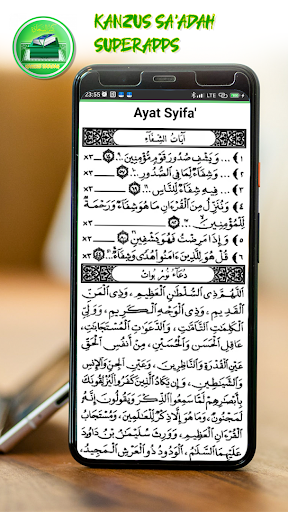 KANZUS SA'ADAH
SUPERAPPS
23:55
Ayat Syifa'
آيَاتُ الشِّفَآءِ
١) ... وَيَشْفِ صُدُورَ قَوْمٍ مُؤْمِنِينَ ... ×٣
٢) ... وَشِفَآءٌ لِمَا فِى الصُّدُورِ ... ×٣
٣) ... فِيهِ شِفَآءٌ لِلنَّاسِ ... ×٣
٤) وَنُنَزِّلُ مِنَ الْقُرْءَانِ مَا هُوَ شِفَآءٌ وَرَحْمَةٌ
لِلْمُؤْمِنِينَ ... ×٣
٥) وَإِذَا مَرِضْتُ فَهُوَ يَشْفِينِ ×٣
٦) قُلْ هُوَ لِلَّذِينَ ءَامَنُوا هُدًى وَشِفَآءٌ ... ×٣
دُعَآءُ نُوْرِ بُوَاتْ
اَللّٰهُمَّ ذِى السُّلْطَانِ الْعَظِيْمِ، وَذِى الْمَنِّ
الْقَدِيْمِ، وَذِى الْوَجْهِ الْكَرِيْمِ، وَوَلِيِّ
الْكَلِمَاتِ التَّآمَّاتِ، وَالدَّعَوَاتِ الْمُسْتَجَابَاتِ
عَاقِلِ الْحَسَنِ وَالْحُسَيْنِ، مِنْ اَنْفُسِ الْحَقِّ
عَيْنِ الْقُدْرَةِ وَالنَّاظِرِيْنَ، وَعَيْنِ الْجِنِّ وَالْإِنْسِ
وَالشَّيَاطِيْنِ، وَإِنْ يَكَادُ الَّذِيْنَ كَفَرُوا لَيُزْلِقُوْنَكَ
بِأَبْصَارِهِمْ لَمَّا سَمِعُوا الذِّكْرَ وَيَقُوْلُوْنَ إِنَّهُ
لَمَجْنُوْنٌ، وَمَا هُوَ إِلَّا ذِكْرٌ لِلْعَالَمِيْنَ، وَمُسْتَجَابُ
الْقُرْءَانِ الْعَظِيْمِ، وَوَرِثَ سُلَيْمَانُ بْنُ دَاوُدَ
عَلَيْهِمَا السَّلَامُ، الْوَدُوْدُ ذُو الْعَرْشِ الْمَجِيْدِ،